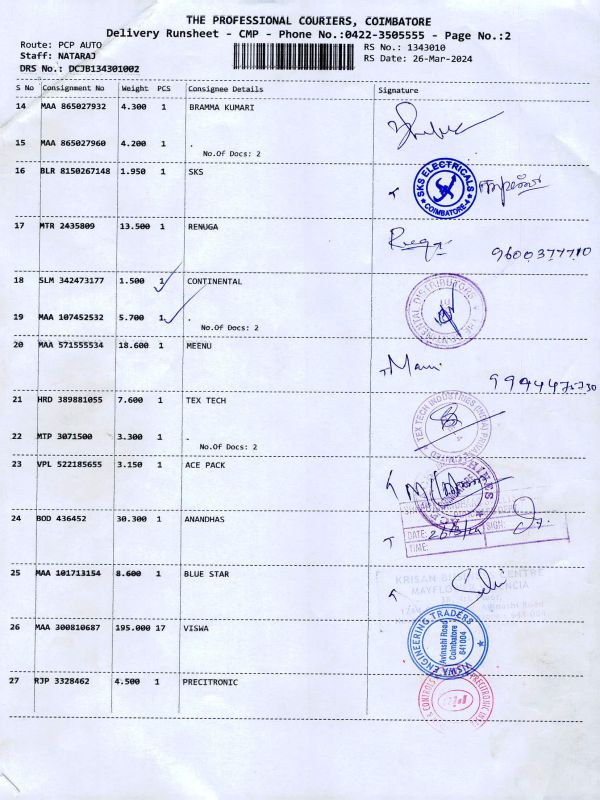 THE PROFESSIONAL COURIERS, COIMBATORE
Delivery Runsheet - CMP - Phone No.:0422-3505555 - Page No.:2
Route: PCP AUTO RS No.: 1343010
Staff: NATARAJ RS Date: 26-Mar-2024
DRS No.: DCJB134301002
S No Consignment No Weight PCS Consignee Details Signature
14 MAA 865027932 4.300 1 BRAMMA KUMARI
15 MAA 865027960 4.200 1 .
No.Of Docs: 2
16 BLR 8150267148 1.950 1 SKS
SKS ELECTRICALS
COIMBATORE-4
17 MTR 2435809 13.500 1 RENUGA
9600377710
18 SLM 342473177 1.500 1 CONTINENTAL
19 MAA 107452532 5.700 1 .
No.Of Docs: 2
20 MAA 571555534 18.600 1 MEENU
9944475730
21 HRD 389881055 7.600 1 TEX TECH
TEX TECH INDUSTRIES (INDIA) PRIVATE LIMITED
22 MTP 3071500 3.300 1 .
No.Of Docs: 2
23 VPL 522185655 3.150 1 ACE PACK
24 BOD 436452 30.300 1 ANANDHAS
DATE: SIGN:
TIME:
25 MAA 101713154 8.600 1 BLUE STAR
26 MAA 300810687 195.000 17 VISWA
VISWA ENGINEERING TRADERS
Avinashi Road
Coimbatore
641004
27 RJP 3328462 4.500 1 PRECITRONIC